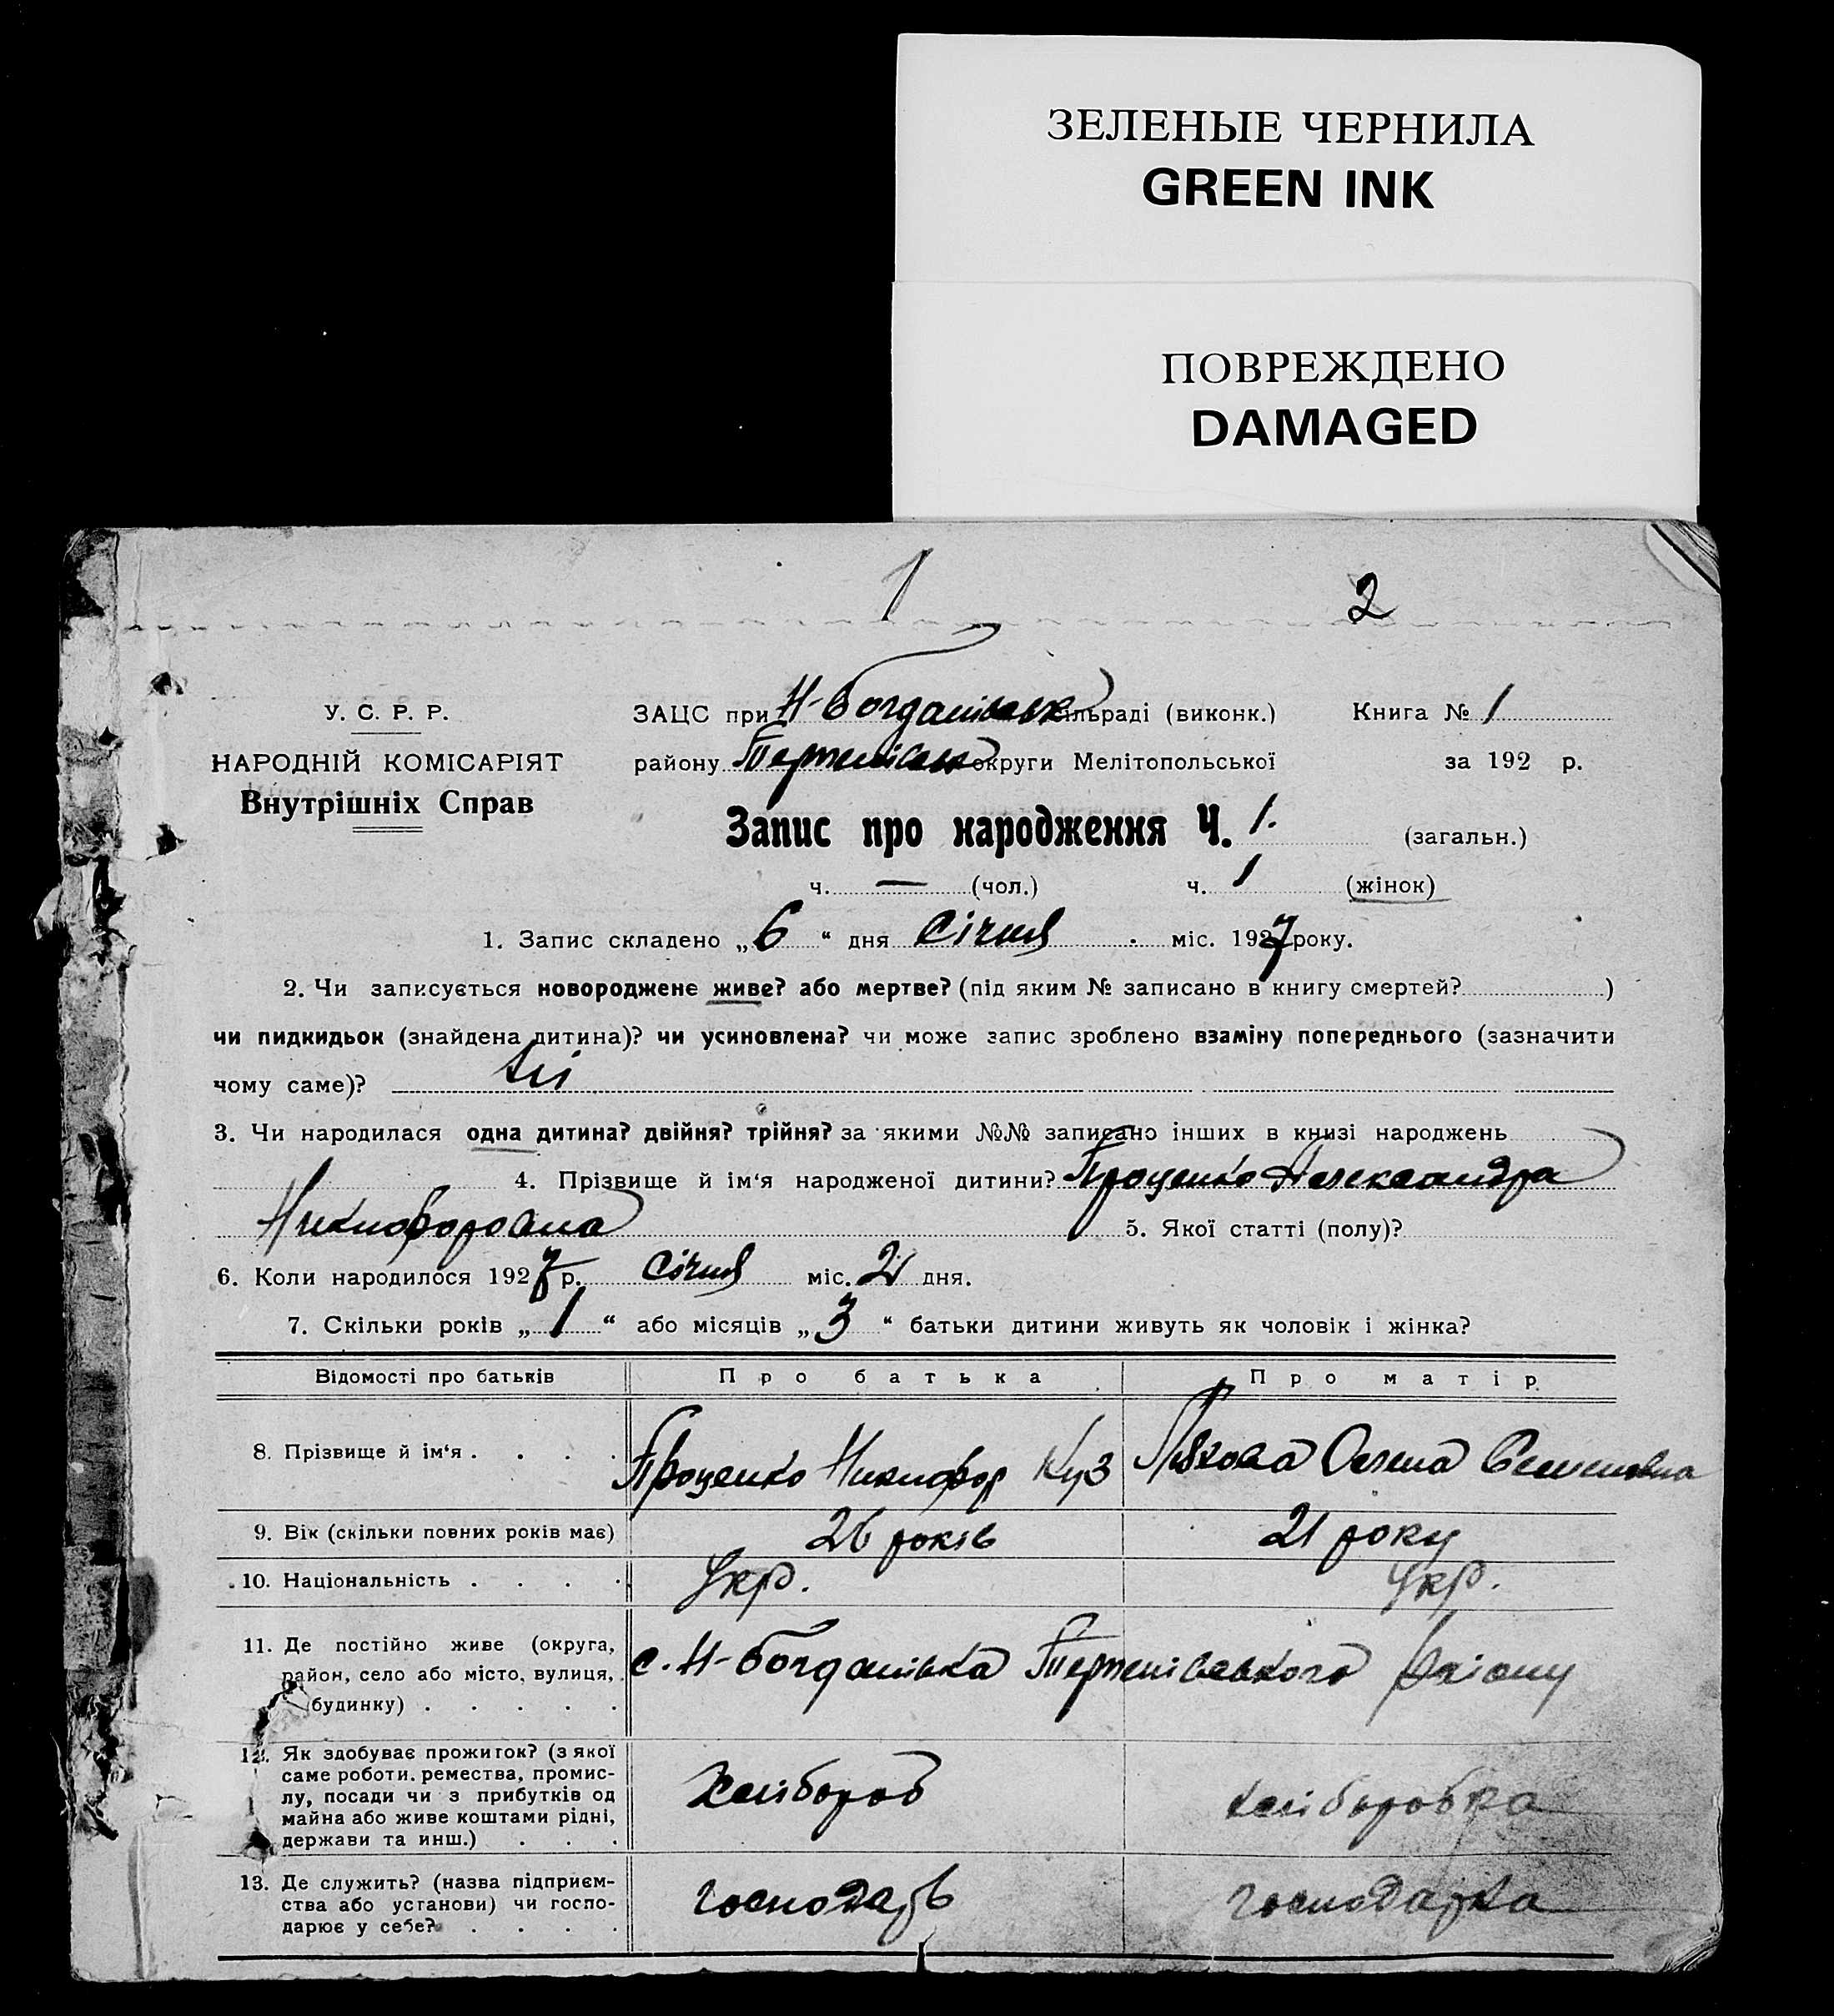 ЗЕЛЕНЫЕ ЧЕРНИЛА
GREEN INK
ПОВРЕЖДЕНО
DAMAGED
1 2
У. С. Р. Р.
НАРОДНІЙ КОМІСАРІЯТ
Внутрішніх Справ
ЗАЦС при Н-Богданівськ сільраді (виконк.) Книга № 1
району Терпенівськ округи Мелітопольської за 192 р.
Запис про народження Ч. 1. (загальн.)
ч. — (чол.) ч. 1 (жінок)
1. Запис складено „6“ дня Січня міс. 1927 року.
2. Чи записується новороджене живе? або мертве? (під яким № записано в книгу смертей? )
чи пидкидьок (знайдена дитина)? чи усиновлена? чи може запис зроблено взаміну попереднього (зазначити
чому саме)? Ні
3. Чи народилася одна дитина? двійня? трійня? за якими №№ записано інших в книзі народжень
4. Прізвище й ім‘я народженої дитини? Проценко Александра
Никифоровна 5. Якої статті (полу)?
6. Коли народилося 1927 р. Січня міс. 2 дня.
7. Скільки років „1“ або місяців „3“ батьки дитини живуть як чоловік і жінка?
Відомості про батьків Про батька Про матір
8. Прізвище й ім‘я . . . . Проценко Никифор Куз Олена Семеновна
9. Вік (скільки повних років має) 26 років 21 року
10. Національність . . . . Укр. Укр.
11. Де постійно живе (округа,
район, село або місто, вулиця,
будинку) . . . . .
с. Н-Богданівка Терпенівського Району
12. Як здобуває прожиток? (з якої
саме роботи. ремества, промис-
лу, посади чи з прибутків од
майна або живе коштами рідні,
держави та инш.) . . .
Хлібороб хліборобка
13. Де служить? (назва підприєм-
ства або установи) чи госпо-
дарює у себе? . . . .
господарь господарка